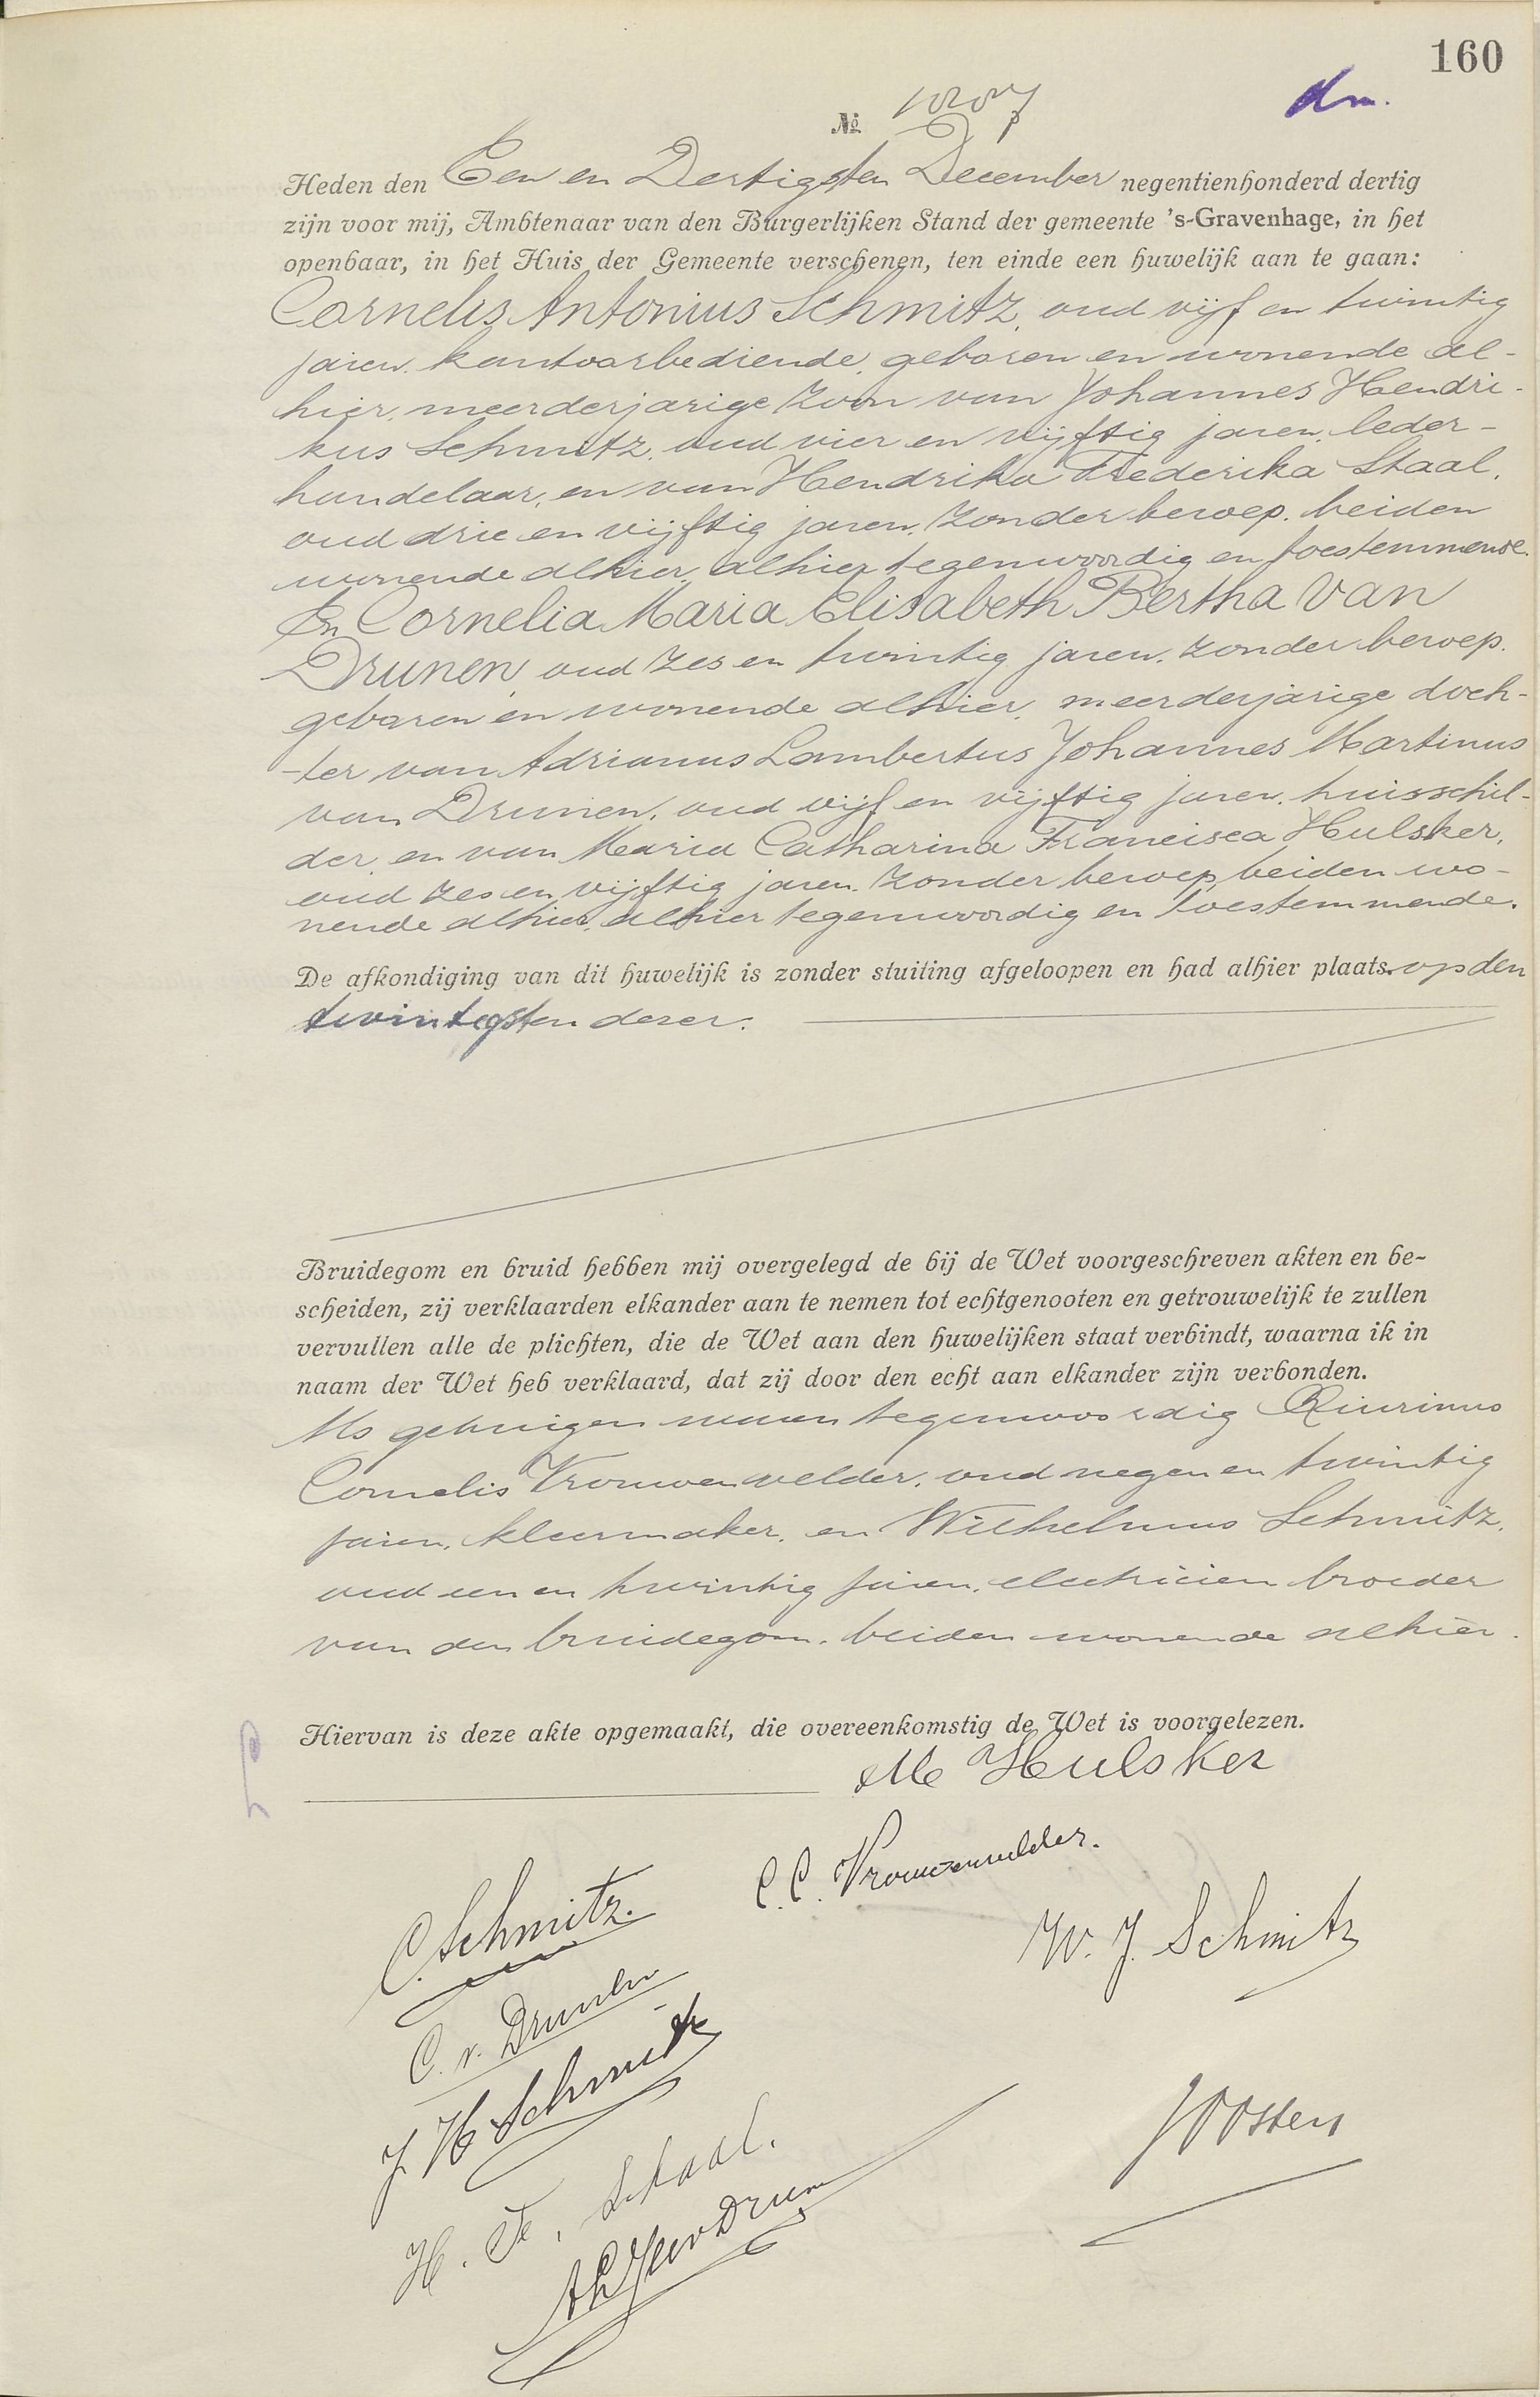 160
dm.
№
Heden den Een en Dertigsten December negentienhonderd dertig
zijn voor mij, Ambtenaar van den Burgerlijken Stand der gemeente 's-Gravenhage, in het
openbaar, in het Huis der Gemeente verschenen, ten einde een huwelijk aan te gaan:
Cornelis Antonius Schmitz, oud vijf en twintig
jaren, kantoorbediende, geboren en wonende al-
hier, meerderjarige zoon van Johannes Hendri-
kus Schmitz, oud vier en vijftig jaren, leder-
handelaar, en van Hendrika Frederika Staal,
oud drie en vijftig jaren, zonder beroep, beiden
wonende alhier, alhier tegenwoordig en toestemmende.
En Cornelia Maria Elisabeth Bertha van
Drunen, oud zes en twintig jaren, zonder beroep,
geboren en wonende alhier, meerderjarige doch-
-ter van Adrianus Lambertus Johannes Martinus
van Drunen, oud vijf en vijftig jaren, huisschil-
der, en van Maria Catharina Francisca Hulsker,
oud zes en vijftig jaren, zonder beroep, beiden wo-
nende alhier, alhier tegenwoordig en toestemmende.
De afkondiging van dit huwelijk is zonder stuiting afgeloopen en had alhier plaats op den
twintigsten dezer.
Bruidegom en bruid hebben mij overgelegd de bij de Wet voorgeschreven akten en be-
scheiden, zij verklaarden elkander aan te nemen tot echtgenooten en getrouwelijk te zullen
vervullen alle de plichten, die de Wet aan den huwelijken staat verbindt, waarna ik in
naam der Wet heb verklaard, dat zij door den echt aan elkander zijn verbonden.
Als getuigen waren tegenwoordig
Cornelis Vrouwenvelder, oud negen en twintig
jaren, kleermaker, en Wilhelmus Schmitz,
oud een en twintig jaren, electricien broeder
van den bruidegom, beiden wonende alhier.
Hiervan is deze akte opgemaakt, die overeenkomstig de Wet is voorgelezen.
M Hulsker
C. C. Vrouwenvelder.
C. Schmitz.
W. J. Schmitz
C. v. Drunen
J H Schmitz
JOosten
H. F. Staal.